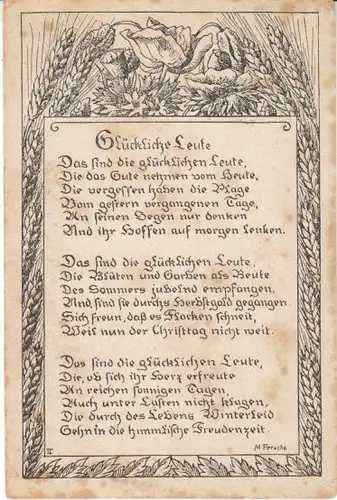 Glückliche Leute
Das sind die glücklichen Leute,
Die das Gute nehmen vom Heute,
Die vergessen haben die Plage
Vom gestern vergangenen Tage,
An seinen Segen nur denken
And ihr Hoffen auf morgen lenken.
Das sind die glücklichen Leute,
Die Blüten und Garben als Beute
Des Sommers jubelnd empfangen.
And, sind sie durchs Herbstgold gegangen
Sich freun, daß es Flocken schneit,
Weil nun der Christtag nicht weit.
Das sind die glücklichen Leute,
Die, ob sich ihr Herz erfreute
An reichen sonnigen Tagen,
Auch unter Lasten nicht klagen,
Die durch des Lebens Winterleid
Gehn in die himmlische Freudenzeit.
M Feesche